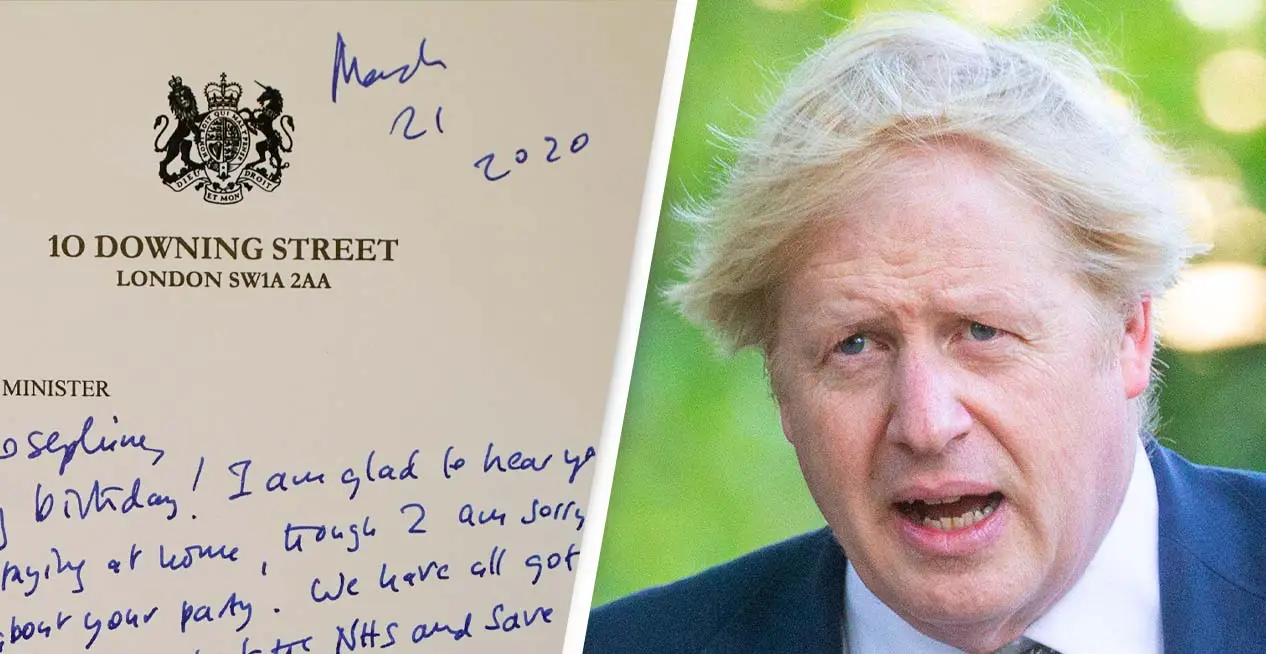 March
21
2020
QUI MAL
DIEU ET MON DROIT
10 DOWNING STREET
LONDON SW1A 2AA
MINISTER
osephine,
birthday! I am glad to hear yo
taying at home, though I am sorry
about your party. We have all got
NHS and save